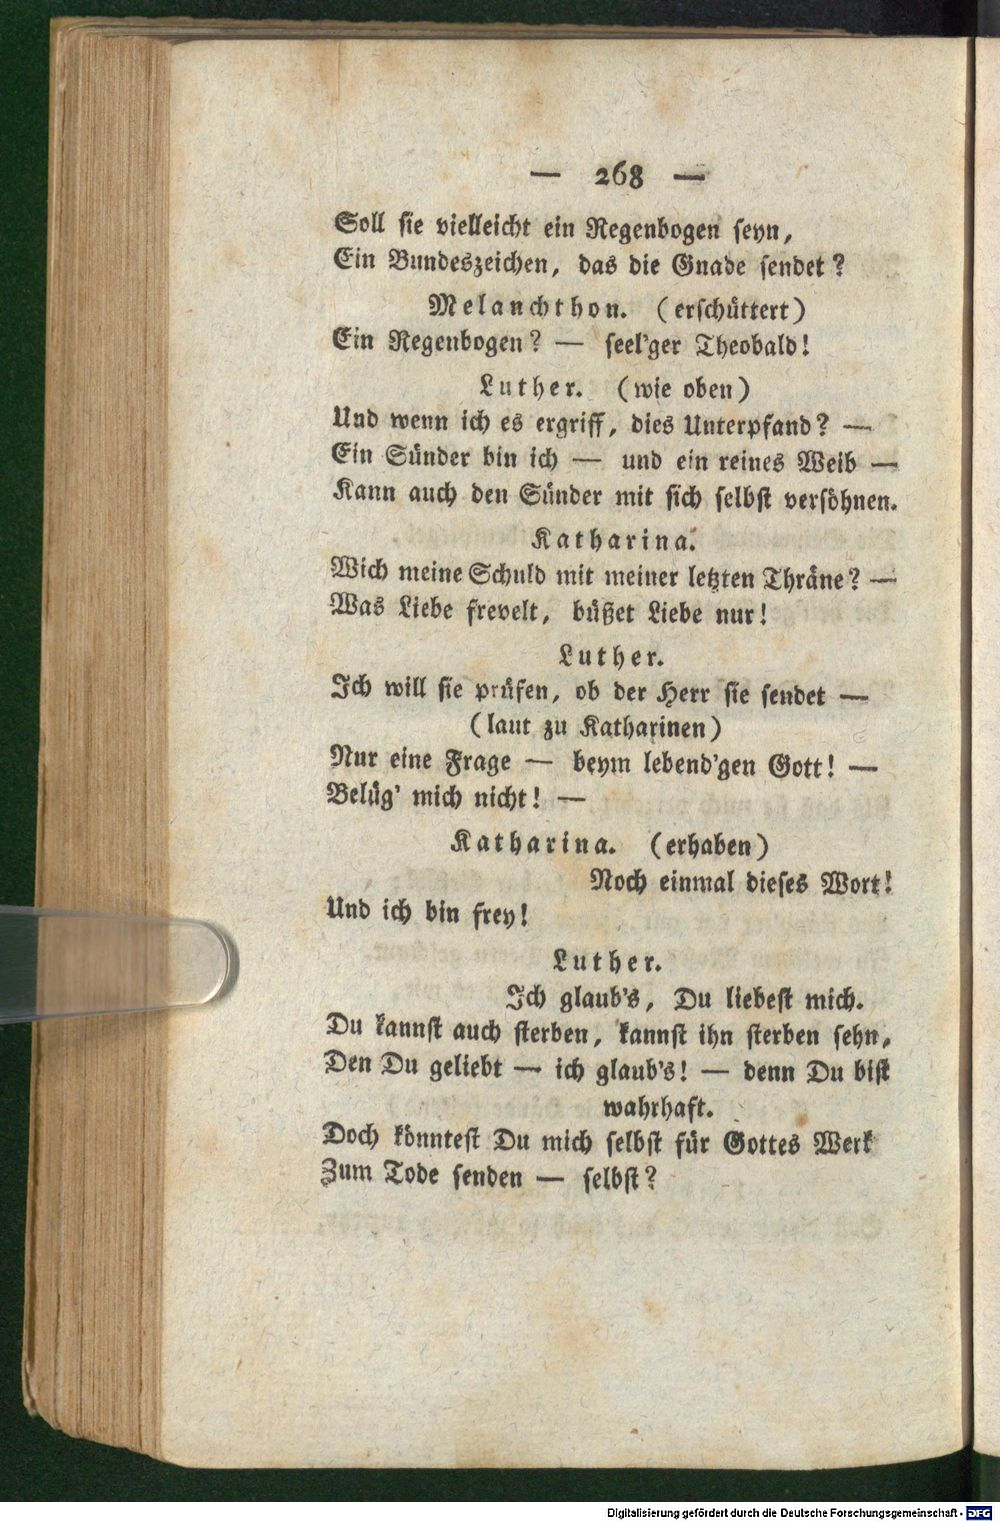 — 268 —
Soll sie vielleicht ein Regenbogen seyn,
Ein Bundeszeichen, das die Gnade sendet?
Melanchthon. (erschüttert)
Ein Regenbogen? — seel'ger Theobald!
Luther. (wie oben)
Und wenn ich es ergriff, dies Unterpfand? —
Ein Sünder bin ich — und ein reines Weib —
Kann auch den Sünder mit sich selbst versöhnen.
Katharina.
Wich meine Schuld mit meiner letzten Thräne? —
Was Liebe frevelt, büßet Liebe nur!
Luther.
Ich will sie prüfen, ob der Herr sie sendet —
(laut zu Katharinen)
Nur eine Frage — beym lebend'gen Gott! —
Belüg' mich nicht! —
Katharina. (erhaben)
Noch einmal dieses Wort!
Und ich bin frey!
Luther.
Ich glaub's, Du liebest mich.
Du kannst auch sterben, kannst ihn sterben sehn,
Den Du geliebt — ich glaub's! — denn Du bist
wahrhaft.
Doch könntest Du mich selbst für Gottes Werk
Zum Tode senden — selbst?
Digitalisierung gefördert durch die Deutsche Forschungsgemeinschaft - DFG